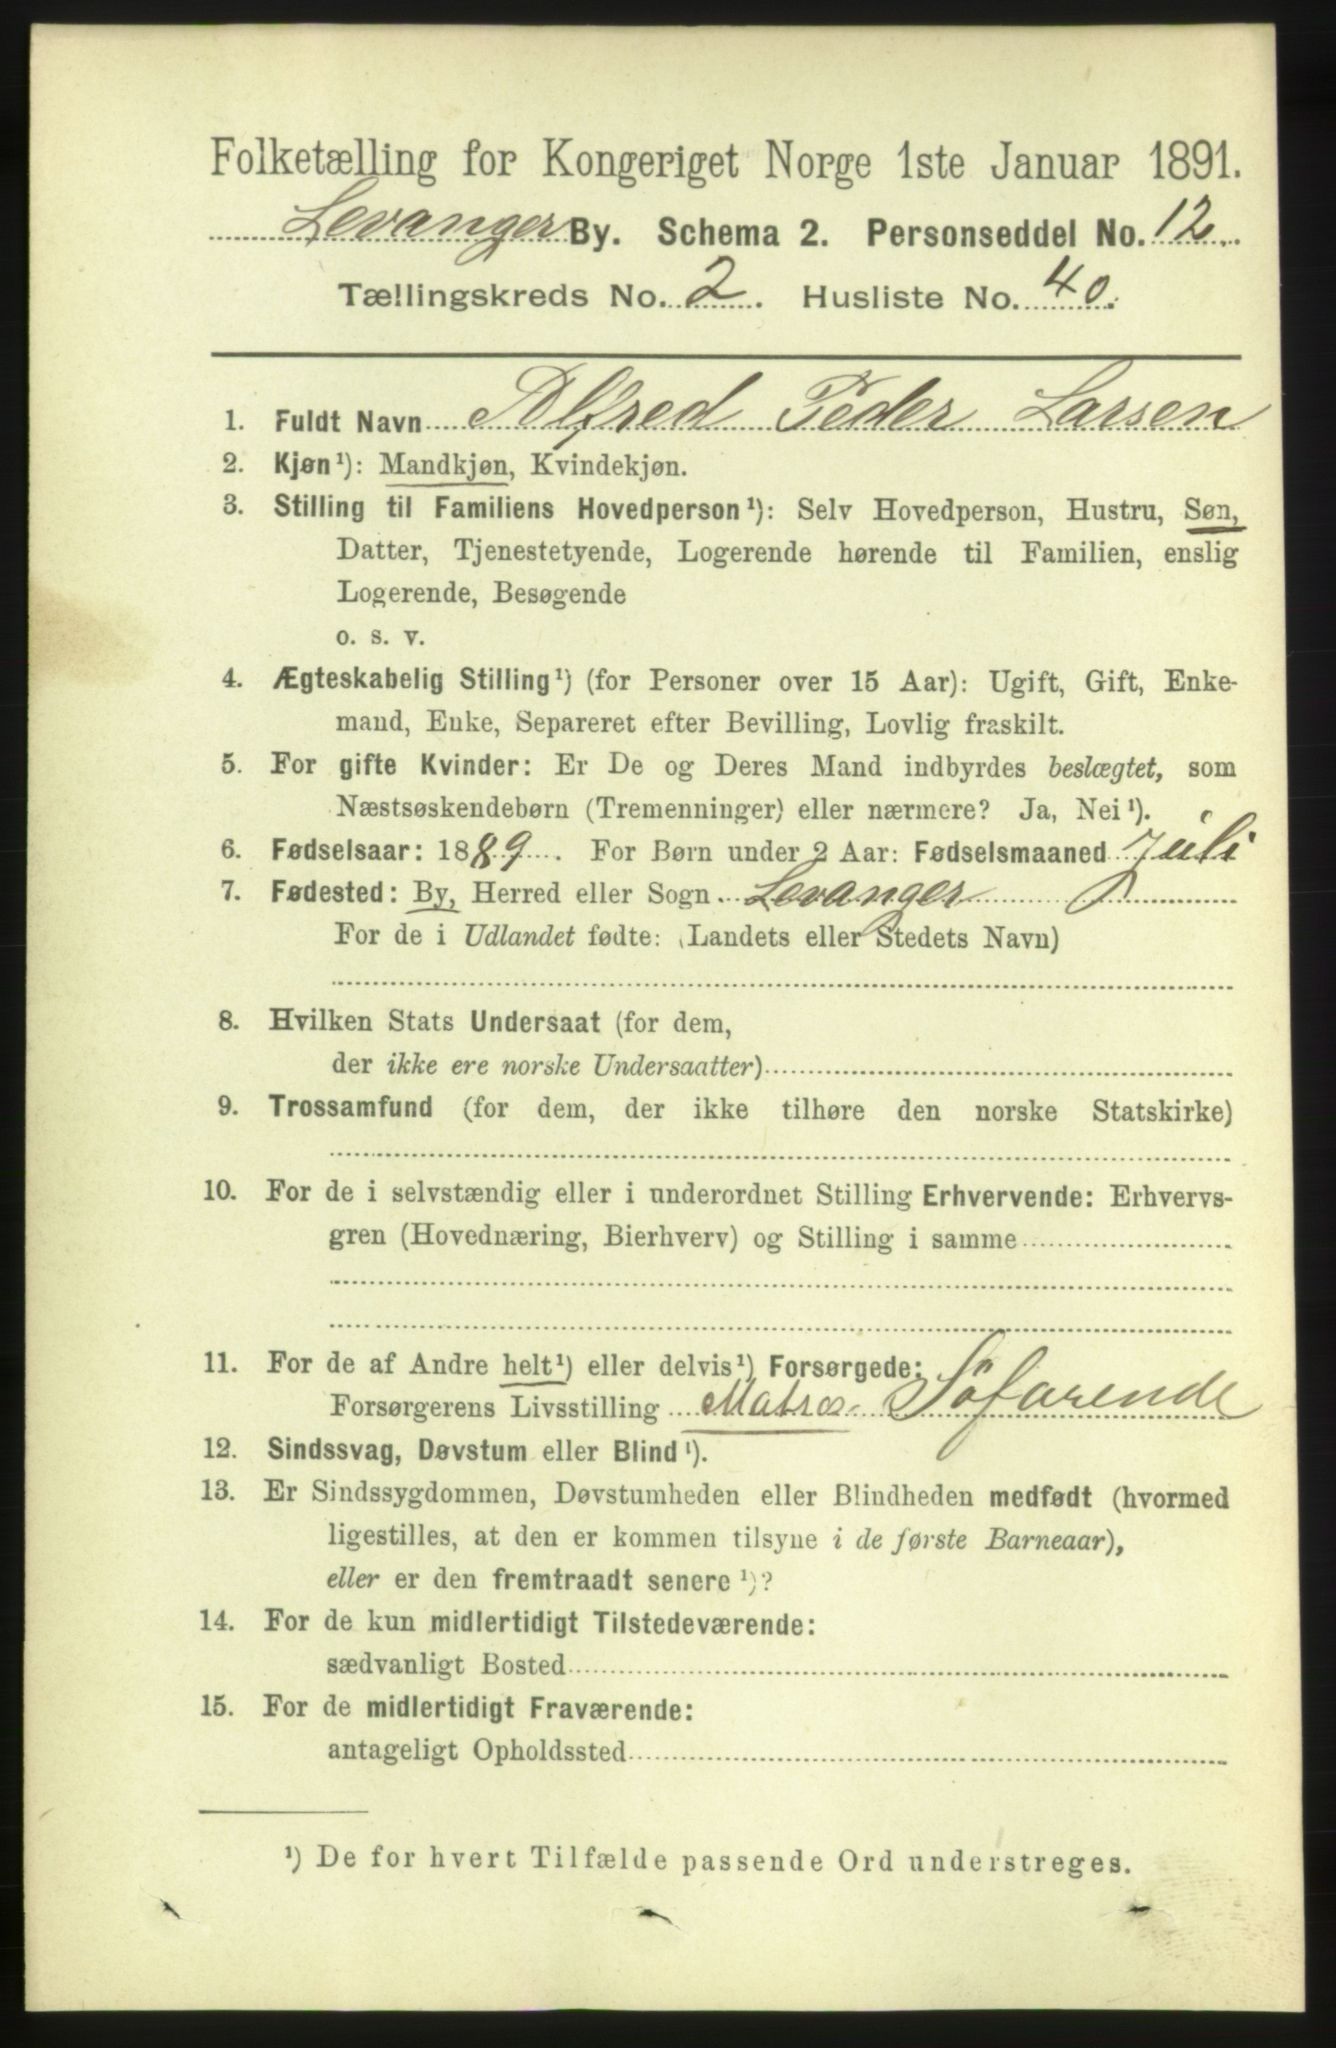 Folketælling for Kongeriget Norge 1ste Januar 1891.
Levanger By. Schema 2. Personseddel No. 12
Tællingskreds No. 2. Husliste No. 40.
1. Fuldt Navn Alfred Peder Larsen
2. Kjøn¹): Mandkjøn, Kvindekjøn.
3. Stilling til Familiens Hovedperson¹): Selv Hovedperson, Hustru, Søn,
Datter, Tjenestetyende, Logerende hørende til Familien, enslig
Logerende, Besøgende
o. s. v.
4. Ægteskabelig Stilling¹) (for Personer over 15 Aar): Ugift, Gift, Enke-
mand, Enke, Separeret efter Bevilling, Lovlig fraskilt.
5. For gifte Kvinder: Er De og Deres Mand indbyrdes beslægtet, som
Næstsøskendebørn (Tremenninger) eller nærmere? Ja, Nei¹).
6. Fødselsaar: 1889. For Børn under 2 Aar: Fødselsmaaned Juli
7. Fødested: By, Herred eller Sogn Levanger
For de i Udlandet fødte: (Landets eller Stedets Navn)
8. Hvilken Stats Undersaat (for dem,
der ikke ere norske Undersaatter)
9. Trossamfund (for dem, der ikke tilhøre den norske Statskirke)
10. For de i selvstændig eller i underordnet Stilling Erhvervende: Erhvervs-
gren (Hovednæring, Bierhverv) og Stilling i samme
11. For de af Andre helt¹) eller delvis¹) Forsørgede:
Forsørgerens Livsstilling Matros Söfarende
12. Sindssvag, Døvstum eller Blind¹).
13. Er Sindssygdommen, Døvstumheden eller Blindheden medfødt (hvormed
ligestilles, at den er kommen tilsyne i de første Barneaar),
eller er den fremtraadt senere¹)?
14. For de kun midlertidigt Tilstedeværende:
sædvanligt Bosted
15. For de midlertidigt Fraværende:
antageligt Opholdssted
¹) De for hvert Tilfælde passende Ord understreges.